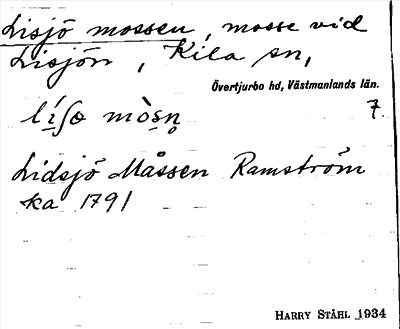 Lisjö mossen, mosse vid
Lisjön, Kila sn,
Övertjurbo hd, Västmanlands län.
7.
Lidsjö Måssen Ramström
ka 1791
HARRY STÅHL 1934